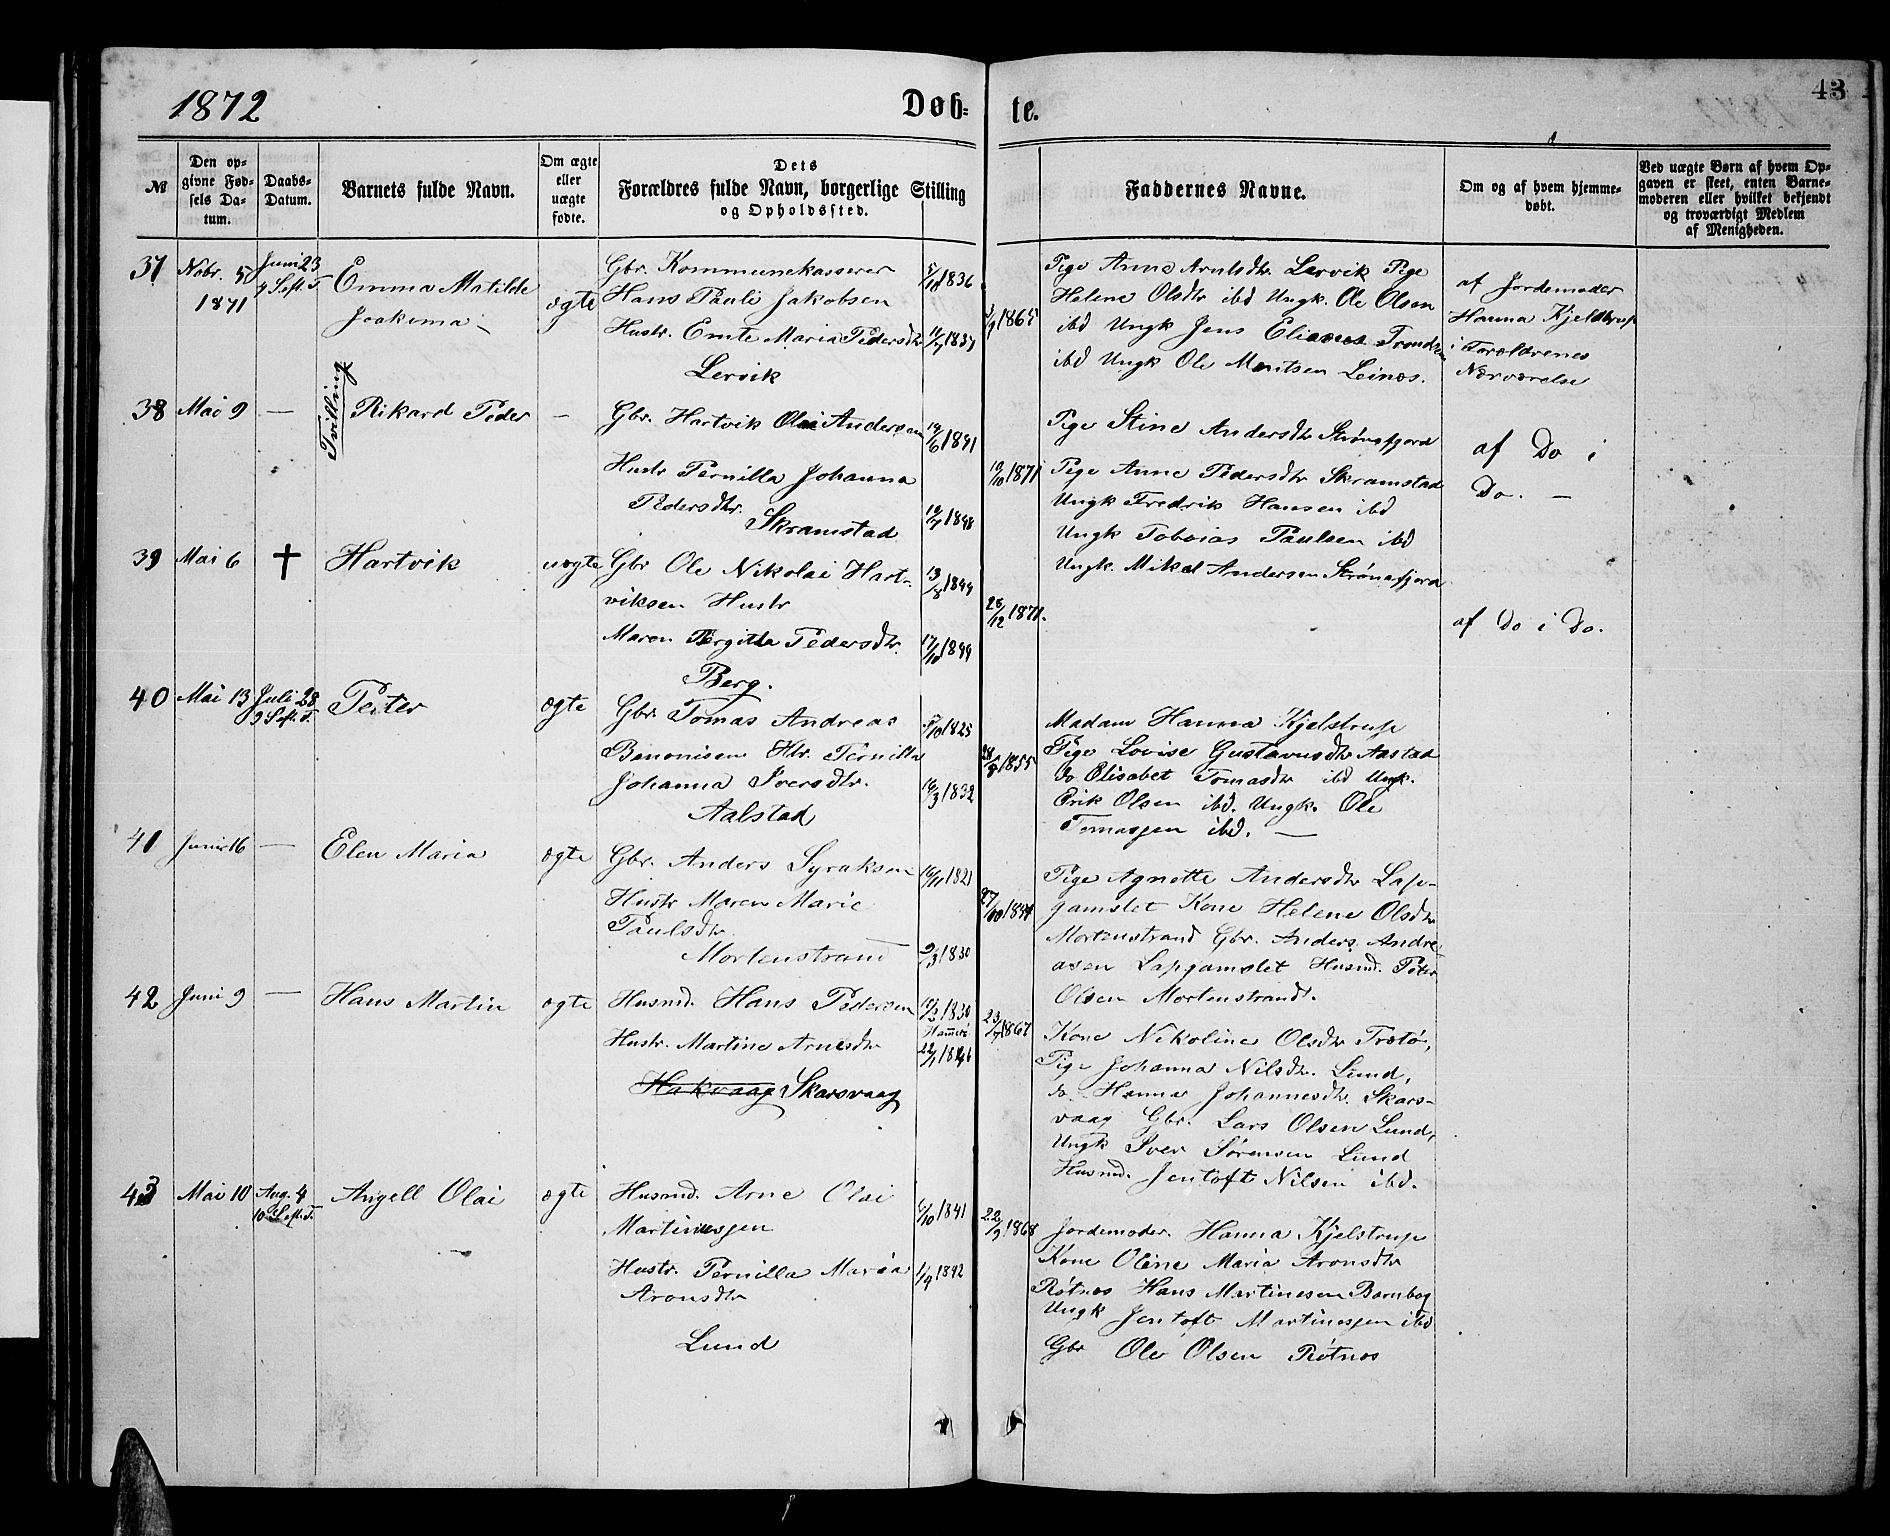 1872
Døb-
te.
43
№
Den op-
givne Fød-
sels Da-
tum.
Daabs-
Datum.
Barnets fulde Navn.
Om ægte
eller
uægte
fødte.
Dets
Forældres fulde Navn, borgerlige Stilling
og Opholdssted.
Faddernes Navne.
Om og af hvem hjemme-
døbt.
Ved uægte Børn af hvem Op-
gaven er skeet, enten Barne-
moderen eller hvilket bekjendt
og troværdigt Medlem
af Menigheden.
37
Nobr. 5
1871
Juni 23
4 S eft. T.
Emma Matilde
Joakima
ægte
Gbr. Kommunekasserer
Hans Pauli Jakobsen
Hustr. Emte Maria Pedersdtr
Lervik
5/10 1836
1837
1865
Pige Anne Arntsdtr Lervik Pige
Helene Olsdtr ibd Ungk. Ole Olsen
ibd Ungk Jens Elias Trondsen
ibd Ungk Ole Montsen Leines.
af Jordemoder
Hanna Kjeldstrup
i Forældrenes
Nærværelse
38
Mai 9
—
Tvilling
Rikard Peder
—
Gbr. Hartvik Olai Andersen
Hustr Pernilla Johanna
Pedersdtr.
Skramstad
19/6 1841
1848
19/10 1871
Pige Stine Andersdtr Strønafjord
Pige Anne Pedersdtr Skramstad
Ungk Fredrik Hansen ibd
Ungk Tobias Paulsen ibd
Ungk. Mikal Andersen Strønafjord
af Do i
Do. —
39
Mai 6
✝
Hartvik
uægte
Gbr Ole Nikolai Hart-
viksen Hustr
Maren Bergitta Pedersdtr.
Berg.
13/8 1844
17/10 1849
28/12 1871.
af Do i Do.
40
Mai 13
Juli 28
9 S eft. T.
Peter
ægte
Gbr Tomas Andreas
Benonisen Htr. Pernilla
Johanna Iversdtr.
Aalstad
5/10 1825
16/3 1832
28/8 1855
Madam Hanna Kjelstrup
Pige Lovise Gustavusdtr Aastad
do Elisabet Tomasdtr ibd Ungk.
Erik Olsen ibd. Ungk. Ole
Tomassen ibd. —
41
Juni 16
—
Elen Maria
ægte
Gbr. Anders Syraksen
Hustr Maren Marie
Paulsdtr.
Mortenstrand
16/11 1821
9/3 1830
27/10
Pige Agnette Andersdtr Lap-
gamslet Kone Helene Olsdtr
Mortenstrand Gbr. Anders Andre-
asen Lapgamslet Husmd. Peter
Olsen Mortenstrand.
42
Juni 9
—
Hans Martin
ægte
Husmd. Hans Pedersen
Hustr. Martine Arnesdtr
Hakvaag Skarsvaag
1830
Hamerø
23/7 1867
Kone Nikoline Olsdtr Trøtø,
Pige Johanna Nilsdtr. Lund,
do. Hanna Johannesdtr. Skars-
vaag Gbr. Lars Olsen Lund,
Ungk Iver Sørensen Lund
Husmd. Jentoft Nilsen ibd.
43
Mai 10
Aug. 4
10 S eft. T.
Angell Olai
ægte
Husmd. Arne Olai
Martinussen
Hustr. Pernilla Maria
Aronsdtr
Lund
6/10 1841
1/9 1842
22/9 1868
Jordemoder. Hanna Kjelstrup
Kone Oline Maria Aronsdtr
Røtnes Hans Martinesen Bambog
Ungk Jentoft Martinessen ibd
Gbr Ole Olsen Røtnes